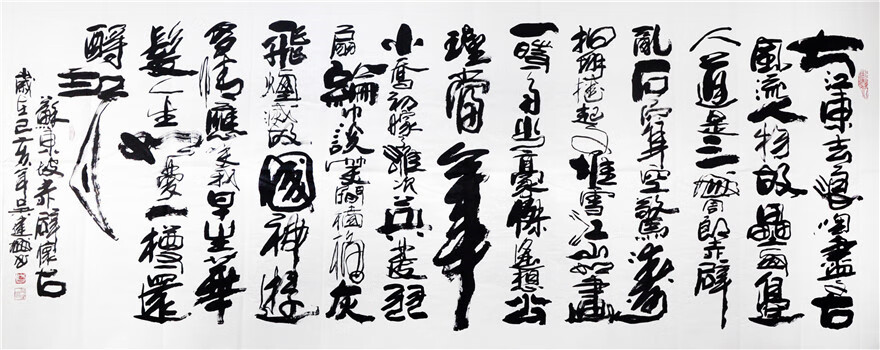 大江東去浪淘盡千古
風流人物故壘西邊
人道是三國周郎赤壁
亂石穿空驚濤
拍岸捲起千堆雪江山如畫
一時多少豪傑遙想公
瑾當年
小喬初嫁了雄姿英發羽
扇綸巾談笑間檣櫓灰
飛煙滅故國神遊
多情應笑我早生華
髮人生如夢一樽還
酹江月
蘇東坡赤壁懷古
歲在己亥年吳建書